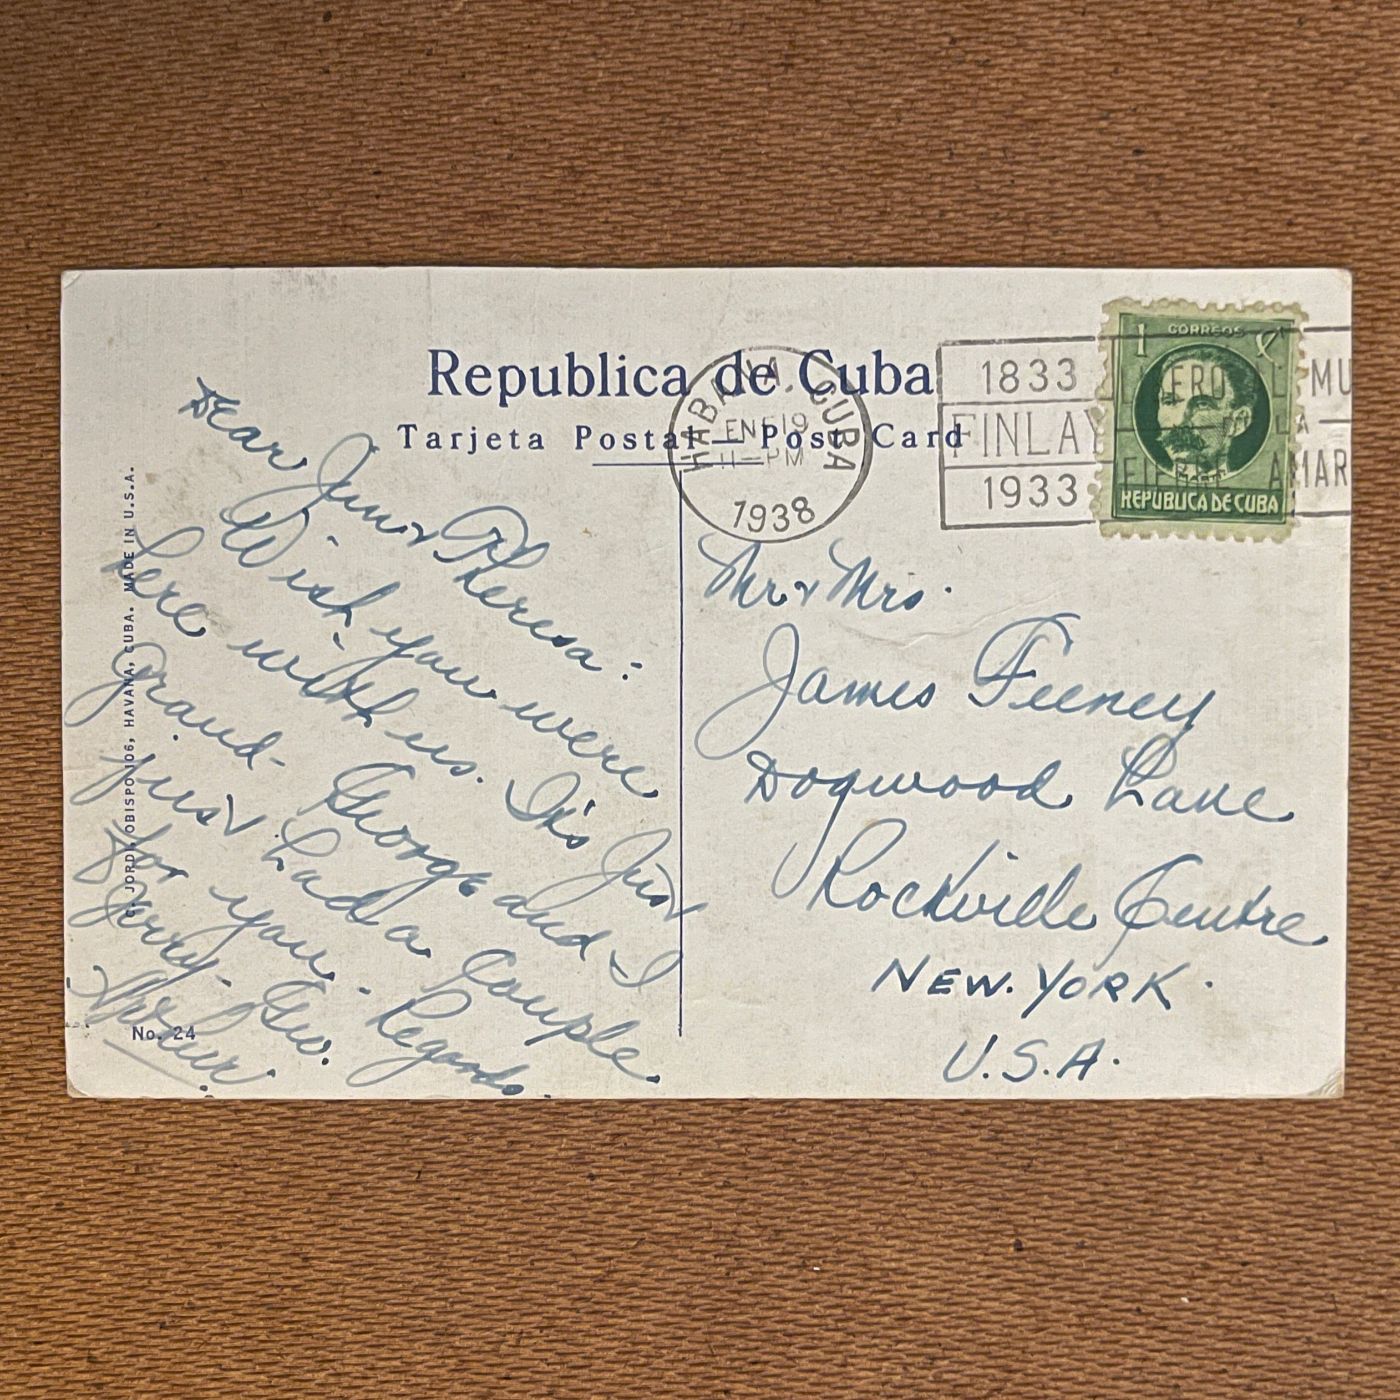 Republica de Cuba
Tarjeta Postal — Post Card
HABANA, CUBA
ENE 19
11-PM
1938
1833
FINLAY
1933
1 CORREOS
REPUBLICA DE CUBA
Dear Jim & Theresa:
Wish you were
here with us. It's Just
Grand- George and I
just had a couple
for you. Regards
Jerry- Geo.
C. JORDI, OBISPO 106, HAVANA, CUBA. MADE IN U.S.A.
No. 24
Mr & Mrs.
James Feeney
Dogwood Lane
Rockville Centre
NEW. YORK.
U.S.A.